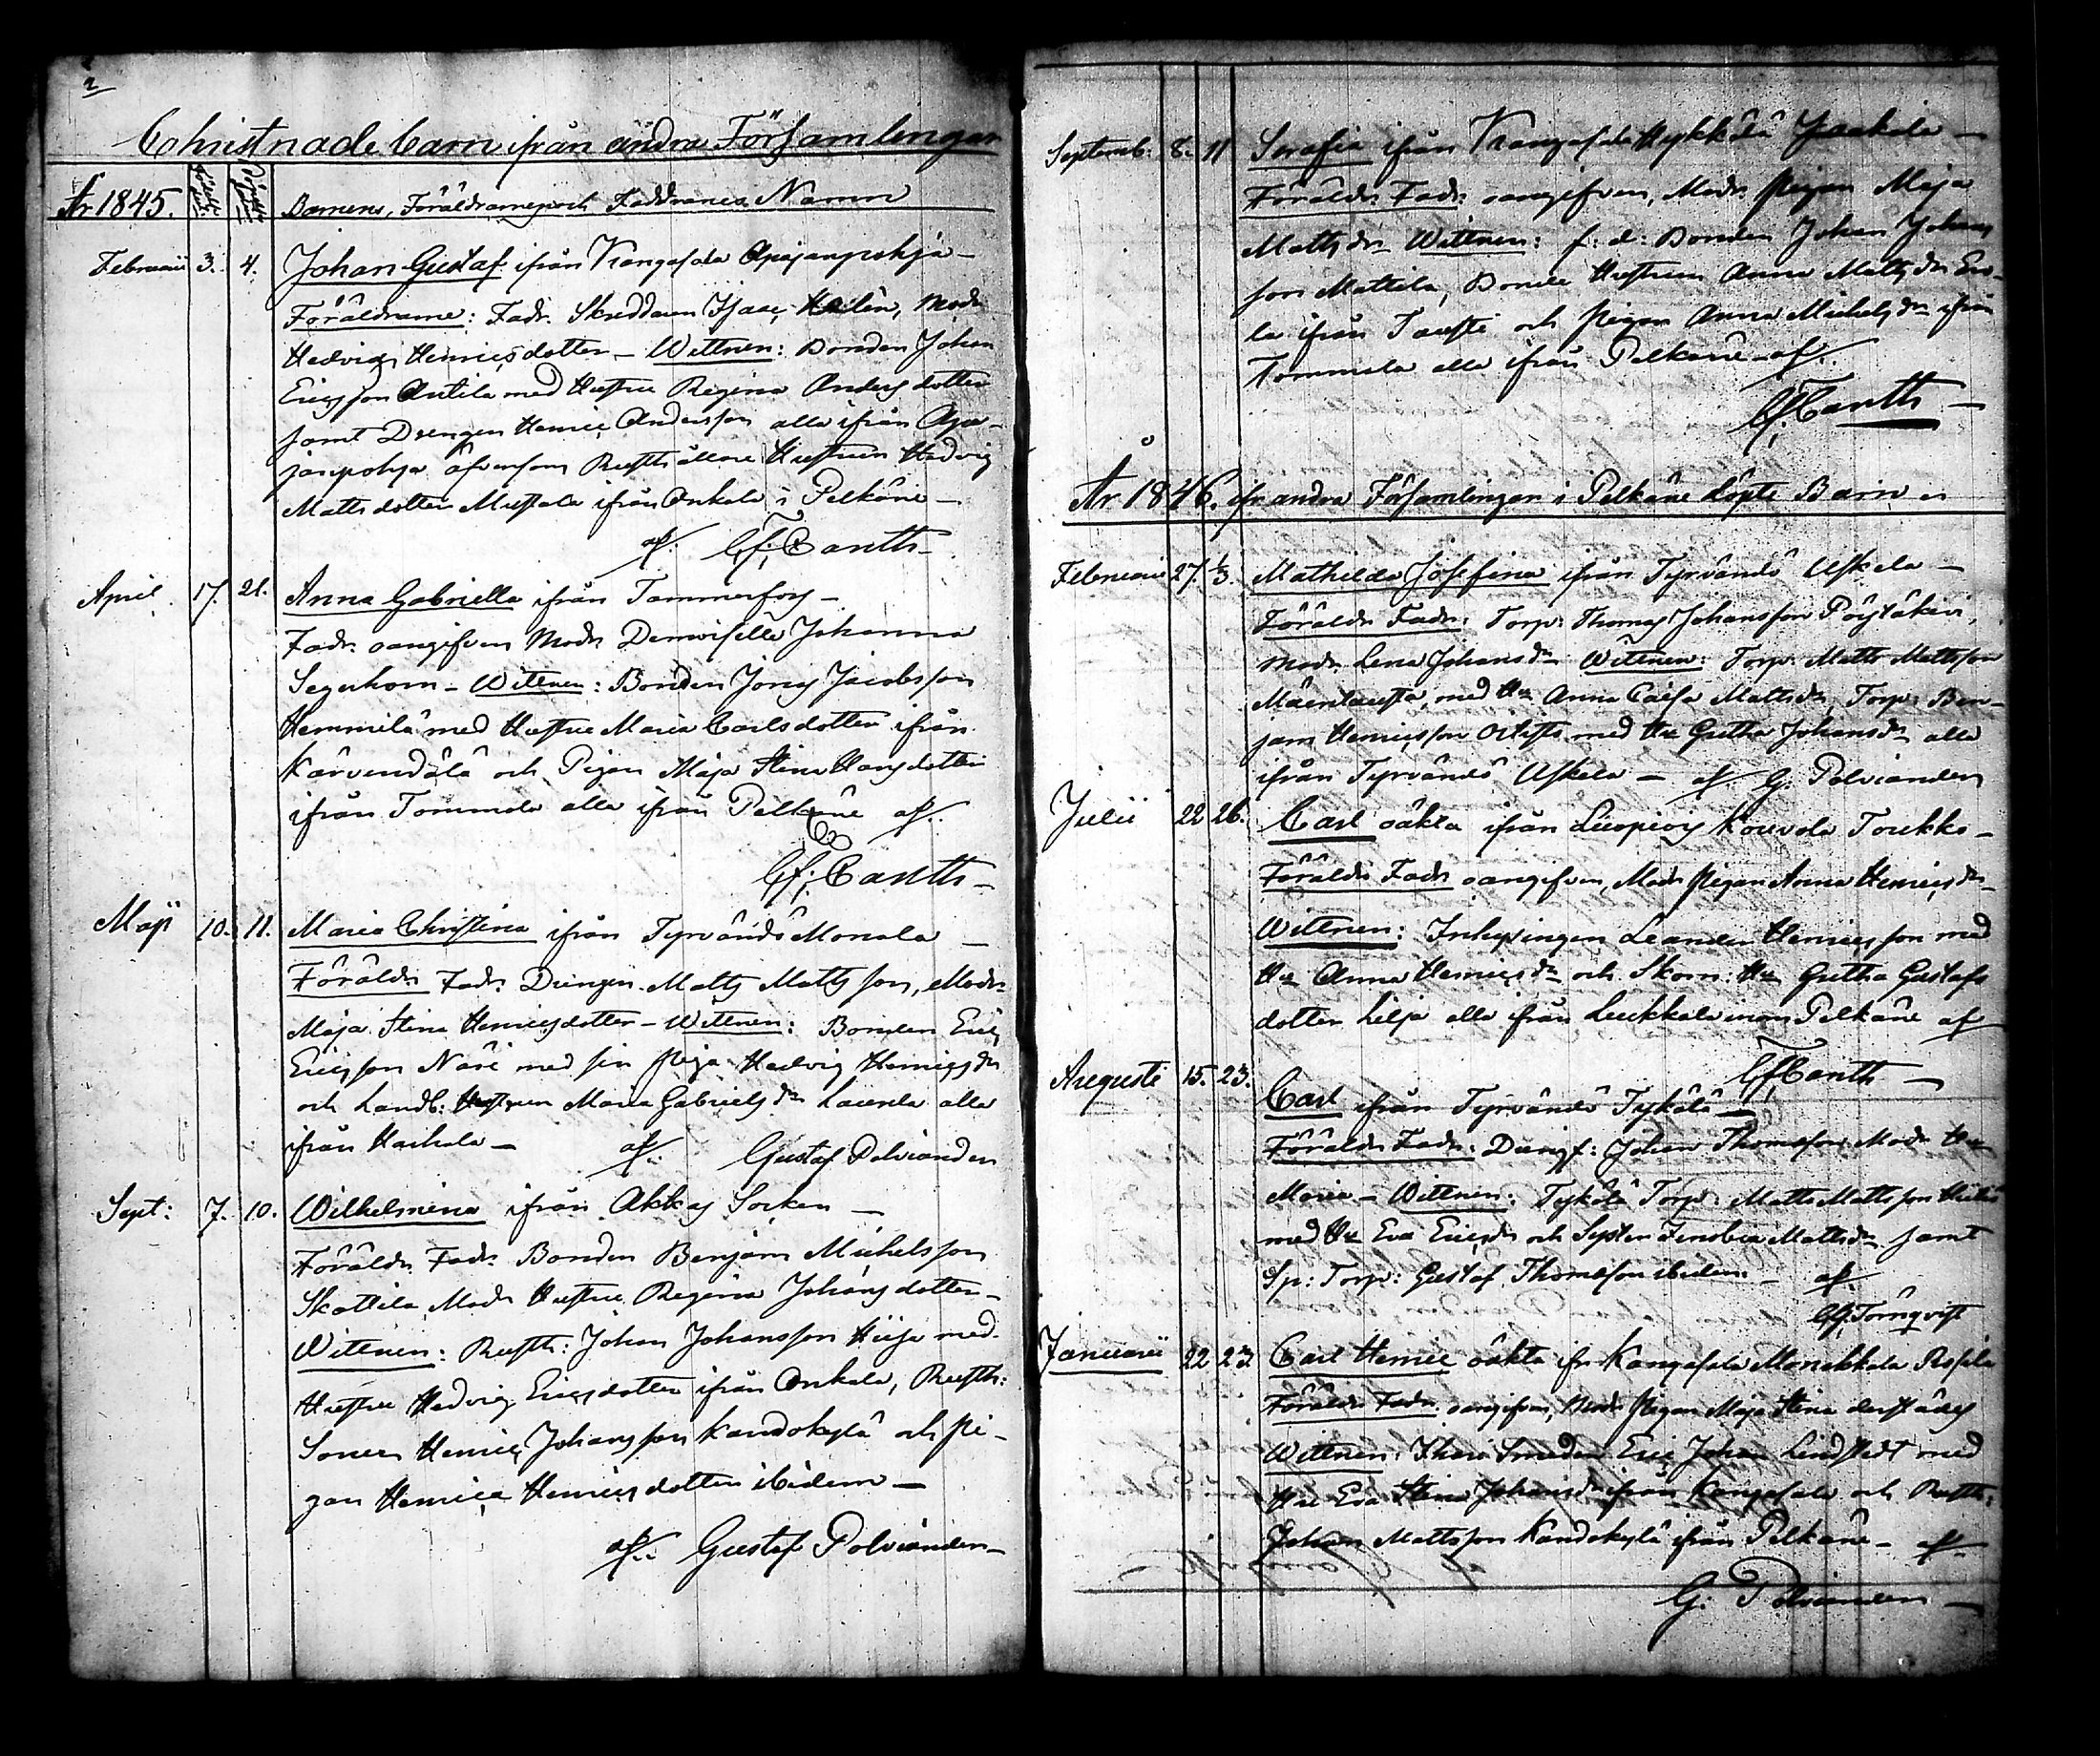 2
Christnade Barn ifrån andra Församlingar
År 1845. Födelse Döpelse Barnens, Föräldrarnes och Faddrarnes Namn
Februarii 3. 4. Johan Gustaf ifrån Kangasala Apajanpohja –
Föräldrarne: Fadr. Skreddaren Isaac Helén, Modr
Hedvig Henricsdotter – Wittnen: Bonden Johan
Ericsson Antila med Hustru Regina Andersdotter
samt Drengen Henric Andersson alla ifrån Apa-
janpohja äfvensom Rusthållare Hustrun Hedvig
Mattsdotter Mustala ifrån Onkala i Pelkäne –
af. Gf. Canth –
April 17. 21. Anna Gabriella ifrån Tammerfors –
Fadr. oangifven Modr Demoiselle Johanna
Segerkorn – Wittnen: Bonden Jöns Jacobsson
Hemmilä med Hustru Maria Carlsdotter ifrån
Kärvendälä och Pigan Maja Stina Hansdotter
ifrån Tommola alla ifrån Pelkäne af.
Gf. Canth –
Maji 10. 11. Maria Christina ifrån Tyrvändö Monala –
Föräldr. Fadr. Drengen Matts Mattsson, Modr
Maja Stina Henricsdotter – Wittnen: Bonden Eric
Ericsson Näri med sin piga Hedvig Henricsdr
och Landb: Hustrun Maria Gabrielsdr Laurila alla
ifrån Haihala – af. Gustaf Polviander
Sept: 7. 10. Wilhelmina ifrån Akkas Socken –
Föräldr. Fadr. Bonden Benjam Michelsson
Skottila, Modr Hustru Regina Johansdotter –
Wittnen: Rusth: Johan Johansson Hiisa med
Hustru Hedvig Ericsdotter ifrån Onkala, Rusth:
Sonen Henric Johansson Kandokylä och Pi-
gan Henrica Henricsdotter ibidem –
af. Gustaf Polviander –
Septemb: 8. 11 Serafia ifrån Kangasala Hykkölä Jaakola –
Föräldr Fadr. oangifven, Modr. pigan Maja
Mattsdr Wittnen: f. d. Bonden Johan Johans
son Mattila, Bonde Hustrun Anna Mattsdr Ero-
la ifrån Tausti och pigan Anna Michelsdr ifrån
Tommola alla ifrån Pelkäne af.
Gf. Canth –
År 1846. ifr andra Församlingar i Pelkäne döpte Barn
Februarii 27. 1/3. Mathilda Josefina ifrån Tyrvändö Uskila –
Föräldr Fadr. Torp. Thomas Johansson Pöystäkivi,
Modr. Lena Johansdr Wittnen: Torp. Matts Mattsson
Mäentausta, med Hu Anna Caisa Mattsdr, Torp. Ben-
jam Henricsson med Hu Gretha Johansdr alla
ifrån Tyrvändö Uskila – af G. Polviander
Julii 22 26. Carl oäkta ifrån Luopiois Kouvola Toukko –
Föräldr Fadr oangifven, Modr pigan Anna Henricsdr –
Wittnen: Inhysingen Leander Henricsson med
Hu Anna Henricsdr och Skom. Hu Gretha Gustafs
dotter Lilja alla ifrån Luikkala inom Pelkäne af
Gf. Canth –
Augusti 15. 23. Carl ifrån Tyrvändö Tykölä –
Föräldr Fadr. Johan Thomasson Modr Hu
Maria – Wittnen. Tykölä Torp. Matts Mattsson
med Hu Eva Ericsdr och Syster Zenobia Mattsdr samt
Sp: Torp: Gustaf Thomasson ibidem – af.
Törnqvist
Januarii 22 23 Carl Henric oäkta ifr Kangasala Monakkala Rossila
Föräldr Fadr oangifven, Modr pigan Maja Stina derstädes
Wittnen. Smeden Eric Johan Lindstedt med
Hu Eva Stina Johansdr ifrån Kangasala och Rusth:
Johan Mattsson Kandokylä ifrån Pelkäne – af
G. Polviander –